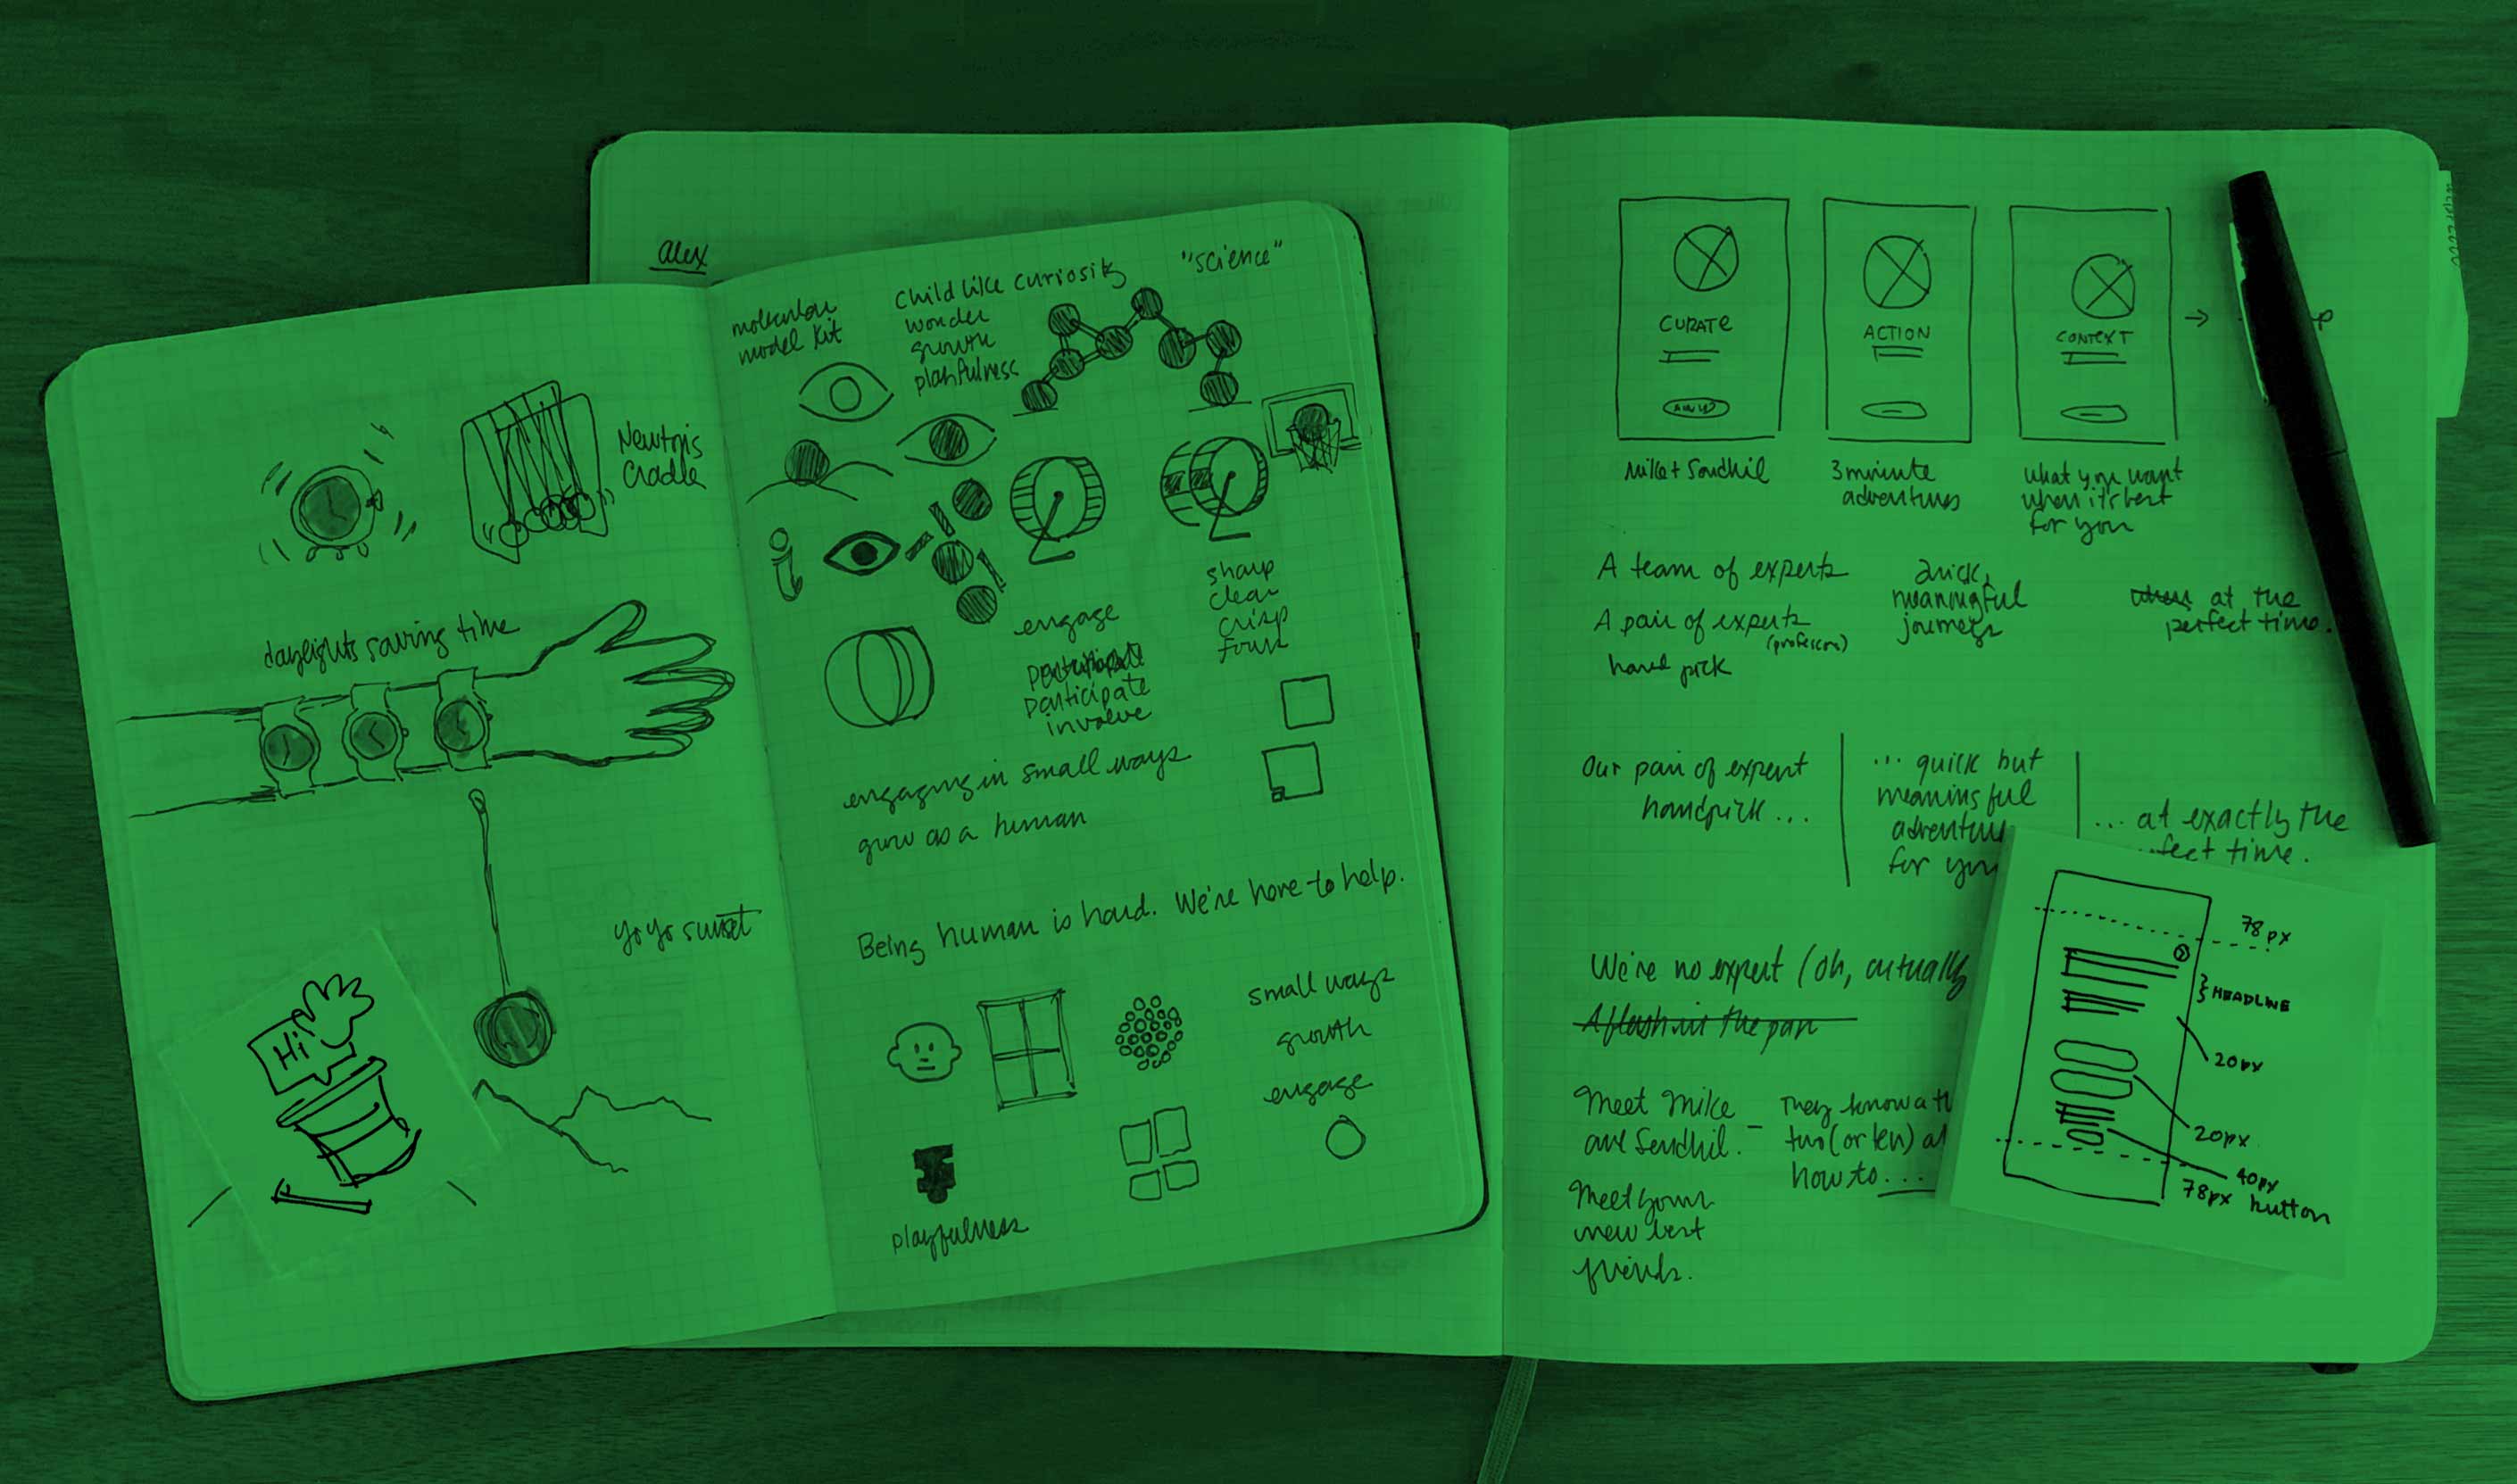 Newton's
Cradle
daylights saving time
yoyo sunset
Hi
alex
molecular
model kit
Child like curiosity
wonder
growth
playfulness
"science"
i
sharp
clear
crisp
engage
participate
involve
engaging in small ways
grow as a human
Being human is hard. We're here to help.
small ways
growth
engage
playfulness
CURATE
ACTION
CONTEXT
→
Mike + Sendhil
3 minute
adventures
what you want
when it's best
for you
A team of experts
A pair of experts
(professors)
hand pick
quick,
meaningful
journeys
when at the
perfect time.
Our pair of expert
handpick ...
... quick but
meaningful
adventure
for you
... at exactly the
fect time.
We're no expert (oh, actually
A flash in the pan
Meet Mike
and Sendhil. –
They know a th
two (or ten) a
how to ...
Meet your
new best
friends.
78px
HEADLINE
20px
20px
40px
78px button